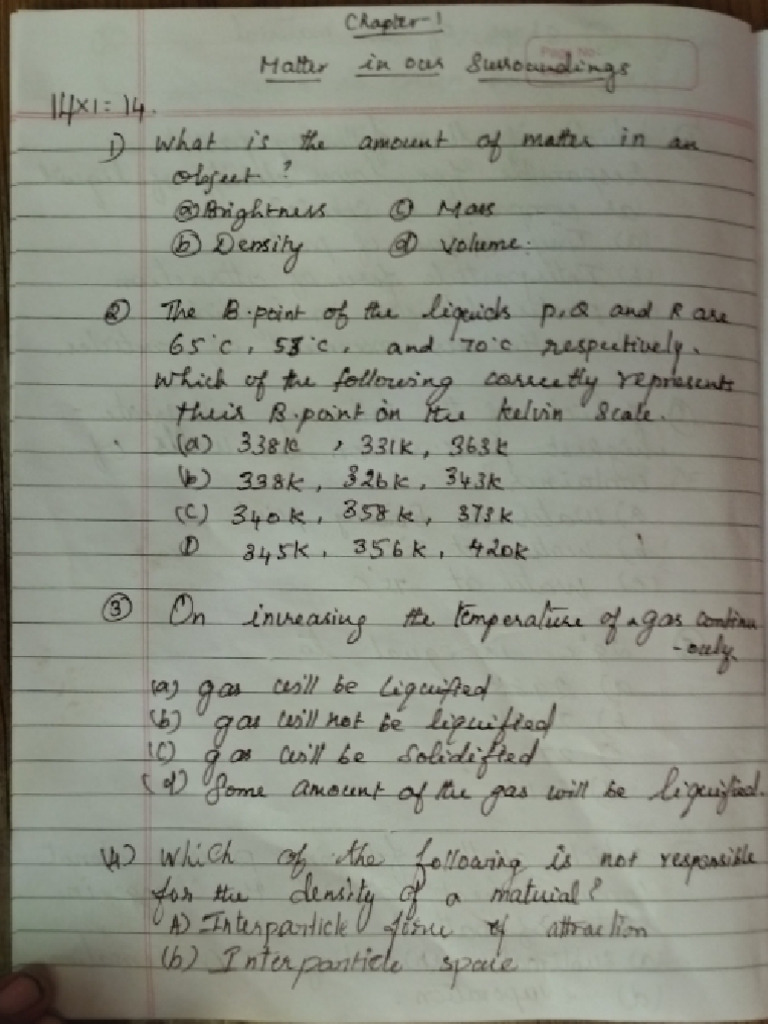 Chapter-1
Page No:
Matter in our Surroundings
14×1=14.
1) What is the amount of matter in an
object?
(a) Brightness (c) Mass
(b) Density (d) volume.
(2) The B.point of the liquids P,Q and R are
65°C, 53°C, and 70°C respectively.
Which of the following correctly represents
their B.point on the kelvin scale.
(a) 338K, 331K, 363K
(b) 338K, 326K, 343K
(c) 340K, 358K, 373K
(D) 345K, 356K, 420K
(3) On increasing the temperature of a gas continu
-ously.
(a) gas will be liquified
(b) gas will not be liquified
(c) gas will be Solidified
(d) Some amount of the gas will be liquified.
(4) Which of the following is not responsible
for the density of a material?
A) Interparticle force of attraction
(b) Interparticle space